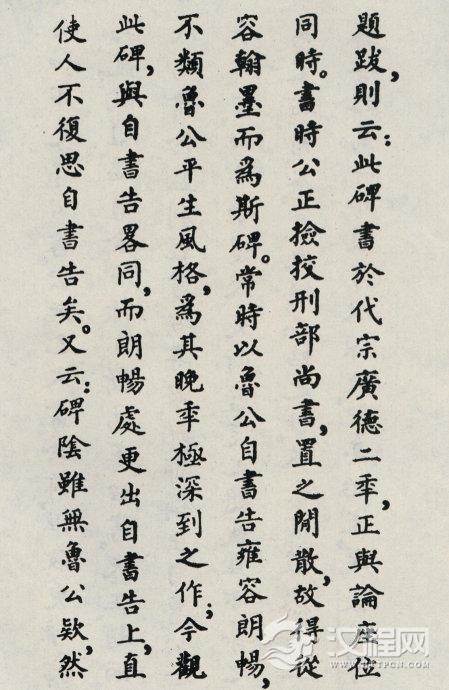 題跋,則云:此碑書於代宗廣德二秊,正與論座位
同時。書時公正撿挍刑部尚書,置之閒散,故得從
容翰墨而爲斯碑。常時以魯公自書告雍容朗暢,
不類魯公平生風格,爲其晚秊極深到之作;今觀
此碑,與自書告畧同,而朗暢處更出自書告上,直
使人不復思自書告矣。又云:碑陰雖無魯公欵,然
汉程网
HTTPCN.COM